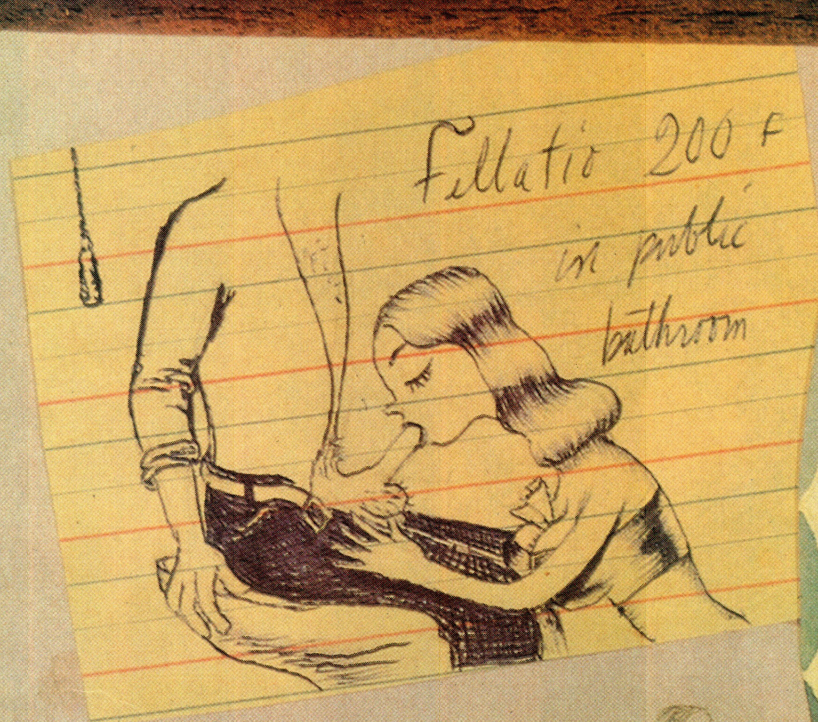 Fellatio 200 F
in public
bathroom